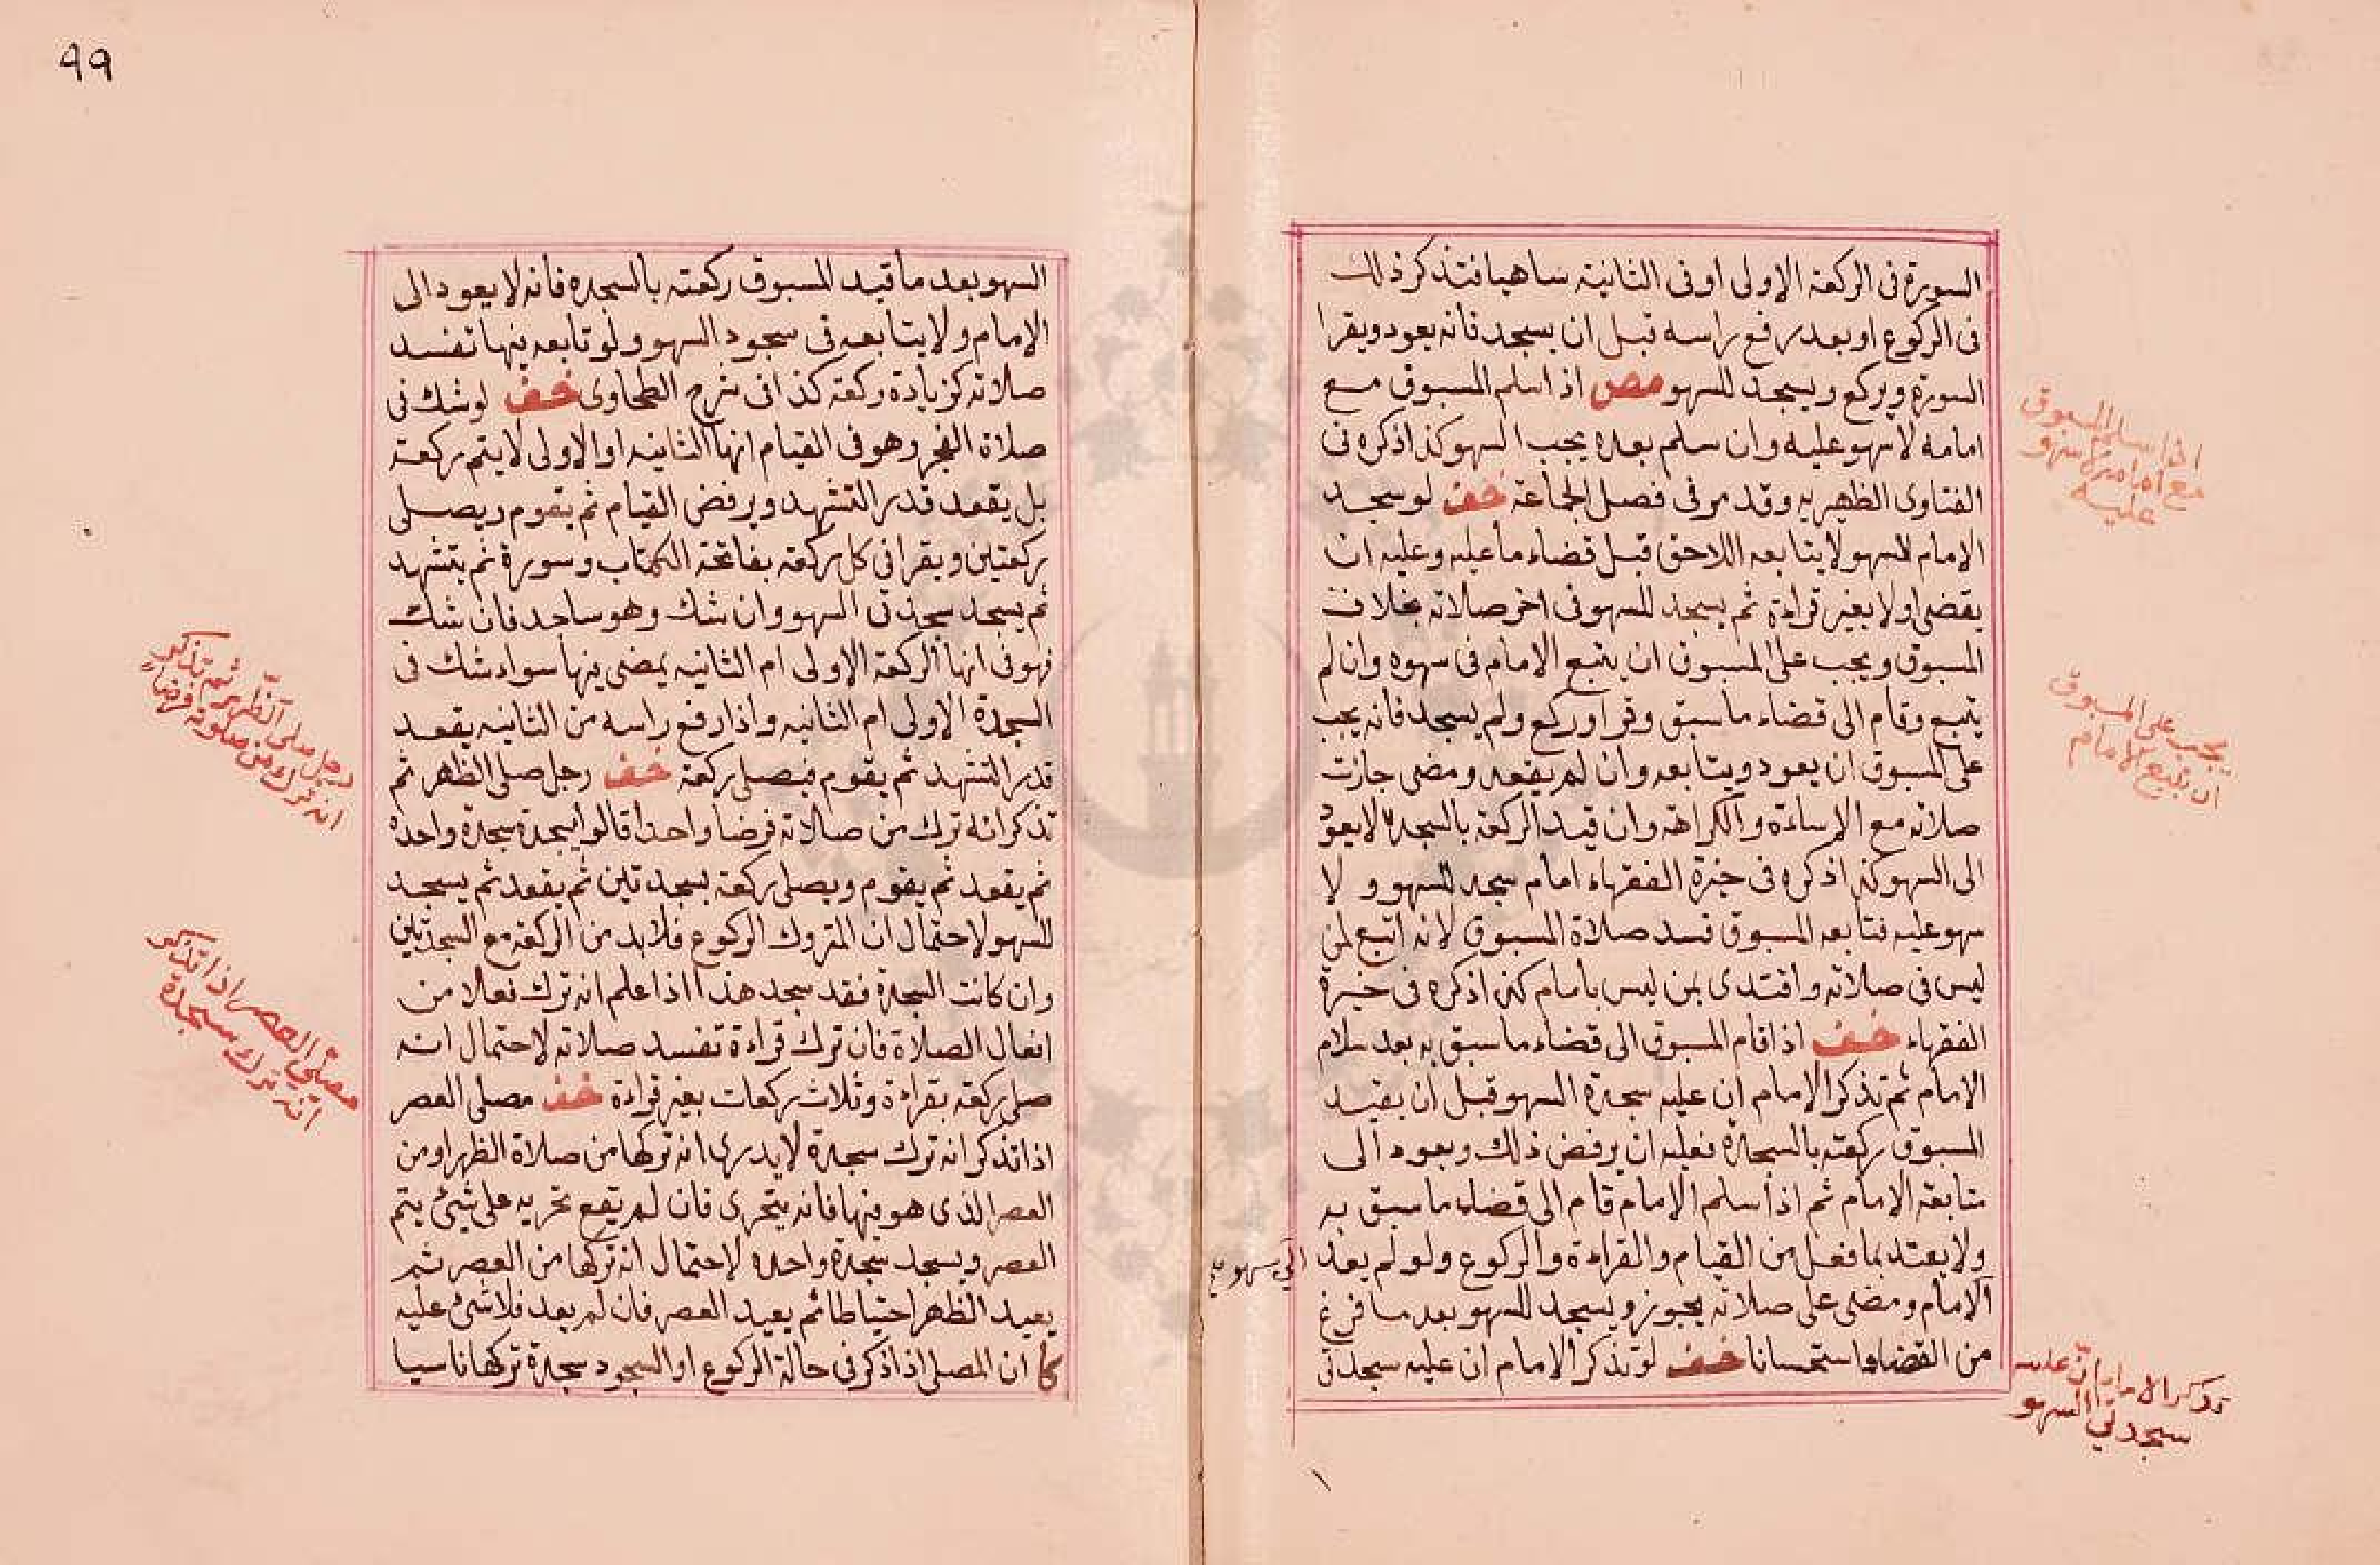 السورة فى الركعة الاولى او فى الثانية ساهيا فتذكر ذلك
فى الركوع او بعد رفع راسه قبل ان يسجد فانه يعود ويقرا
السورة ويركع ويسجد للسهو مص اذا سلم المسبوق مع
امامه لا سهو عليه وان سلم بعده يجب السهو كذا ذكره فى
الفتاوى الظهيريه وقد مر فى فصل الجماعة خف لو سجد
الامام للسهو لا يتابعه اللاحق قبل قضاء ما عليه وعليه ان
يقضى اولا بغير قراءة ثم يسجد للسهو فى اخر صلاته بخلاف
المسبوق ويجب على المسبوق ان يتبع الامام فى سهوه وان لم
يتبع وقام الى قضاء ما سبق وقرا وركع ولم يسجد فانه يجب
على المسبوق ان يعود ويتابعه وان لم يقعد ومضى جازت
صلاته مع الاساءة والكراهة وان قيد الركعة بالسجدة لا يعود
الى السهو كذا ذكره فى خيرة الفقهاء امام سجد للسهو و لا
سهو عليه فتابعه المسبوق فسد صلاة المسبوق لانه اتبع لمن
ليس فى صلاته واقتدى بمن ليس بامام كذا ذكره فى خيرة
الفقهاء خف اذا قام المسبوق الى قضاء ما سبق به بعد سلام
الامام ثم تذكر الامام ان عليه سجدة السهو قبل ان يقيد
المسبوق ركعته بالسجدة فعليه ان يرفض ذلك ويعود الى
متابعة الامام ثم اذا سلم الامام قام الى قضاء ما سبق به
ولا يعتد بما فعل من القيام والقراءة والركوع ولو لم يعد
الامام ومضى على صلاته يجوز ويسجد للسهو بعد ما فرغ
من القضاء استحسانا خف لو تذكر الامام ان عليه سجدتى
اذا سلم المسبوق
مع امامه لا سهو
عليه
يجب على المسبوق
ان يتبع الامام
تذكر الامام ان عليه
سجدتي السهو
٩٩
السهو بعد ما قيد المسبوق ركعته بالسجدة فانه لا يعود الى
الامام ولا يتابعه فى سجود السهو ولو تابعه فيها تفسد
صلاته كزيادة ركعة كذا فى شرح الطحاوى خف لو شك فى
صلاة الفجر وهو فى القيام انها الثانيه او الاولى لا يتم ركعة
بل يقعد قدر التشهد ويرفض القيام ثم يقوم ويصلى
ركعتين ويقرا فى كل ركعة بفاتحة الكتاب وسورة ثم يتشهد
ثم يسجد سجدتى السهو وان شك وهو ساجد فان شك
فهو فى انها الركعة الاولى ام الثانيه يمضى فيها سواء شك فى
السجدة الاولى ام الثانيه واذا رفع راسه من الثانيه يقعد
قدر التشهد ثم يقوم فيصلى ركعة خف رجل صلى الظهر ثم
تذكر انه ترك من صلاته فرضا واحدا قالوا يسجد سجدة واحدة
ثم يقعد ثم يقوم ويصلى ركعة بسجدتين ثم يقعد ثم يسجد
للسهو لاحتمال ان المتروك الركوع فلا بد من الركعة مع السجدتين
وان كانت السجدة فقد سجد هذا اذا علم انه ترك فعلا من
افعال الصلاة فان ترك قراءة تفسد صلاته لاحتمال انه
صلى ركعة بقراءة وثلاث ركعات بغير قراءة خف مصلى العصر
اذا تذكر انه ترك سجدة لا يدرى انه تركها من صلاة الظهر او من
العصر الذى هو فيها فانه يتحرى فان لم يقع تحريه على شيئ يتم
العصر ويسجد سجدة واحدة لاحتمال انه تركها من العصر ثم
يعيد الظهر احتياطا ثم يعيد العصر فان لم يعد فلا شئ عليه
كما ان المصلى اذا ذكر فى حالة الركوع او السجود سجدة تركها ناسيا
رجل صلى الظهر ثم تذكر
انه ترك من صلوته فرضا
مصلى العصر اذا تذكر
انه ترك سجدة